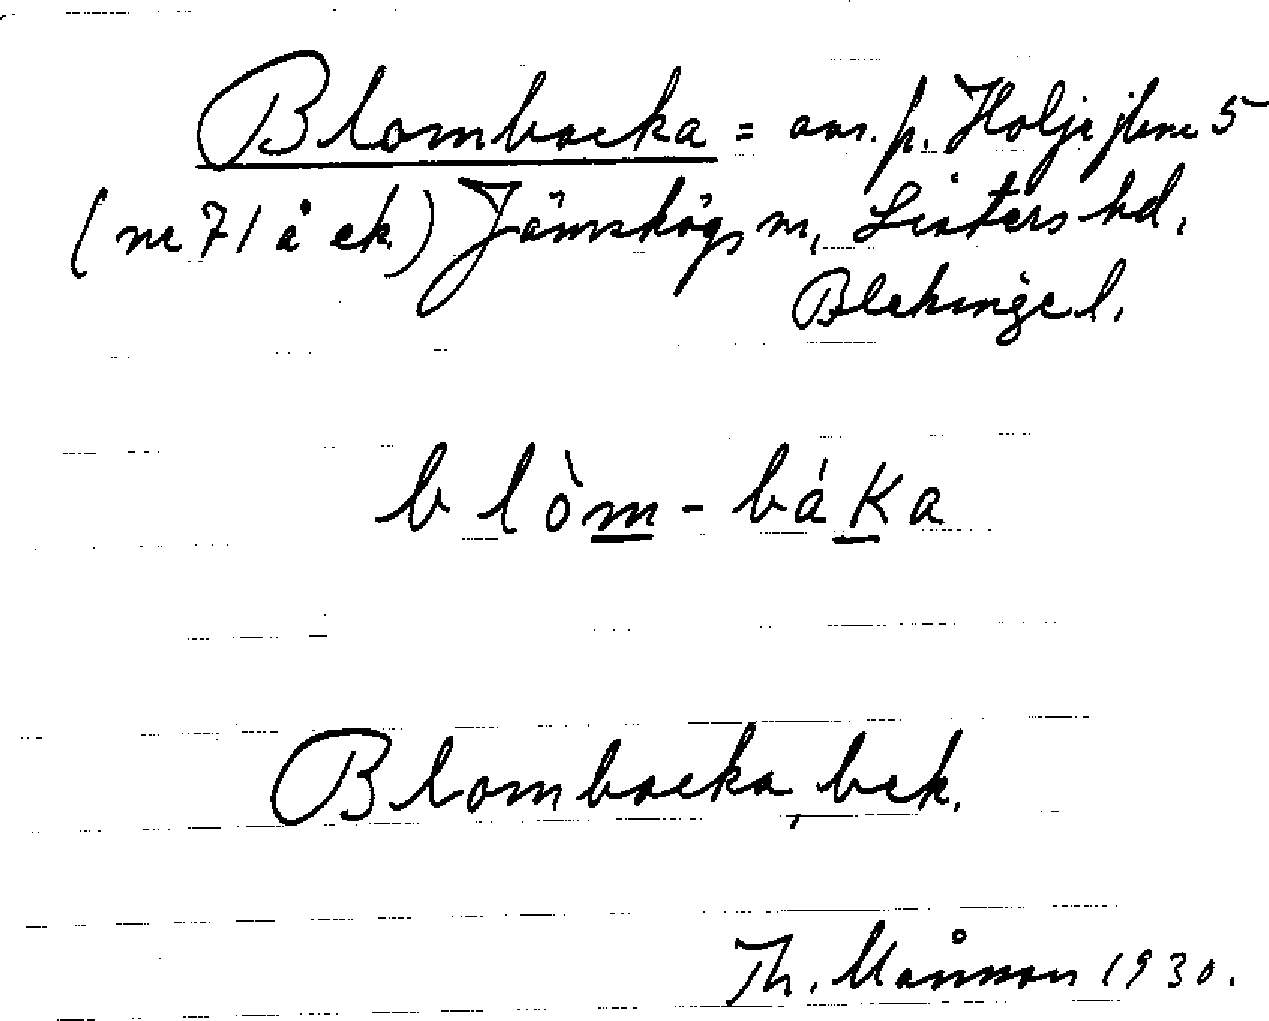 Blombacka = avs. p. Holje jbnr 5
(nr 71 å ek) Jämshögs sn, Listers hd,
Blekinge l.
blòm-báka
Blombacka, bek.
Th. Månson 1930.